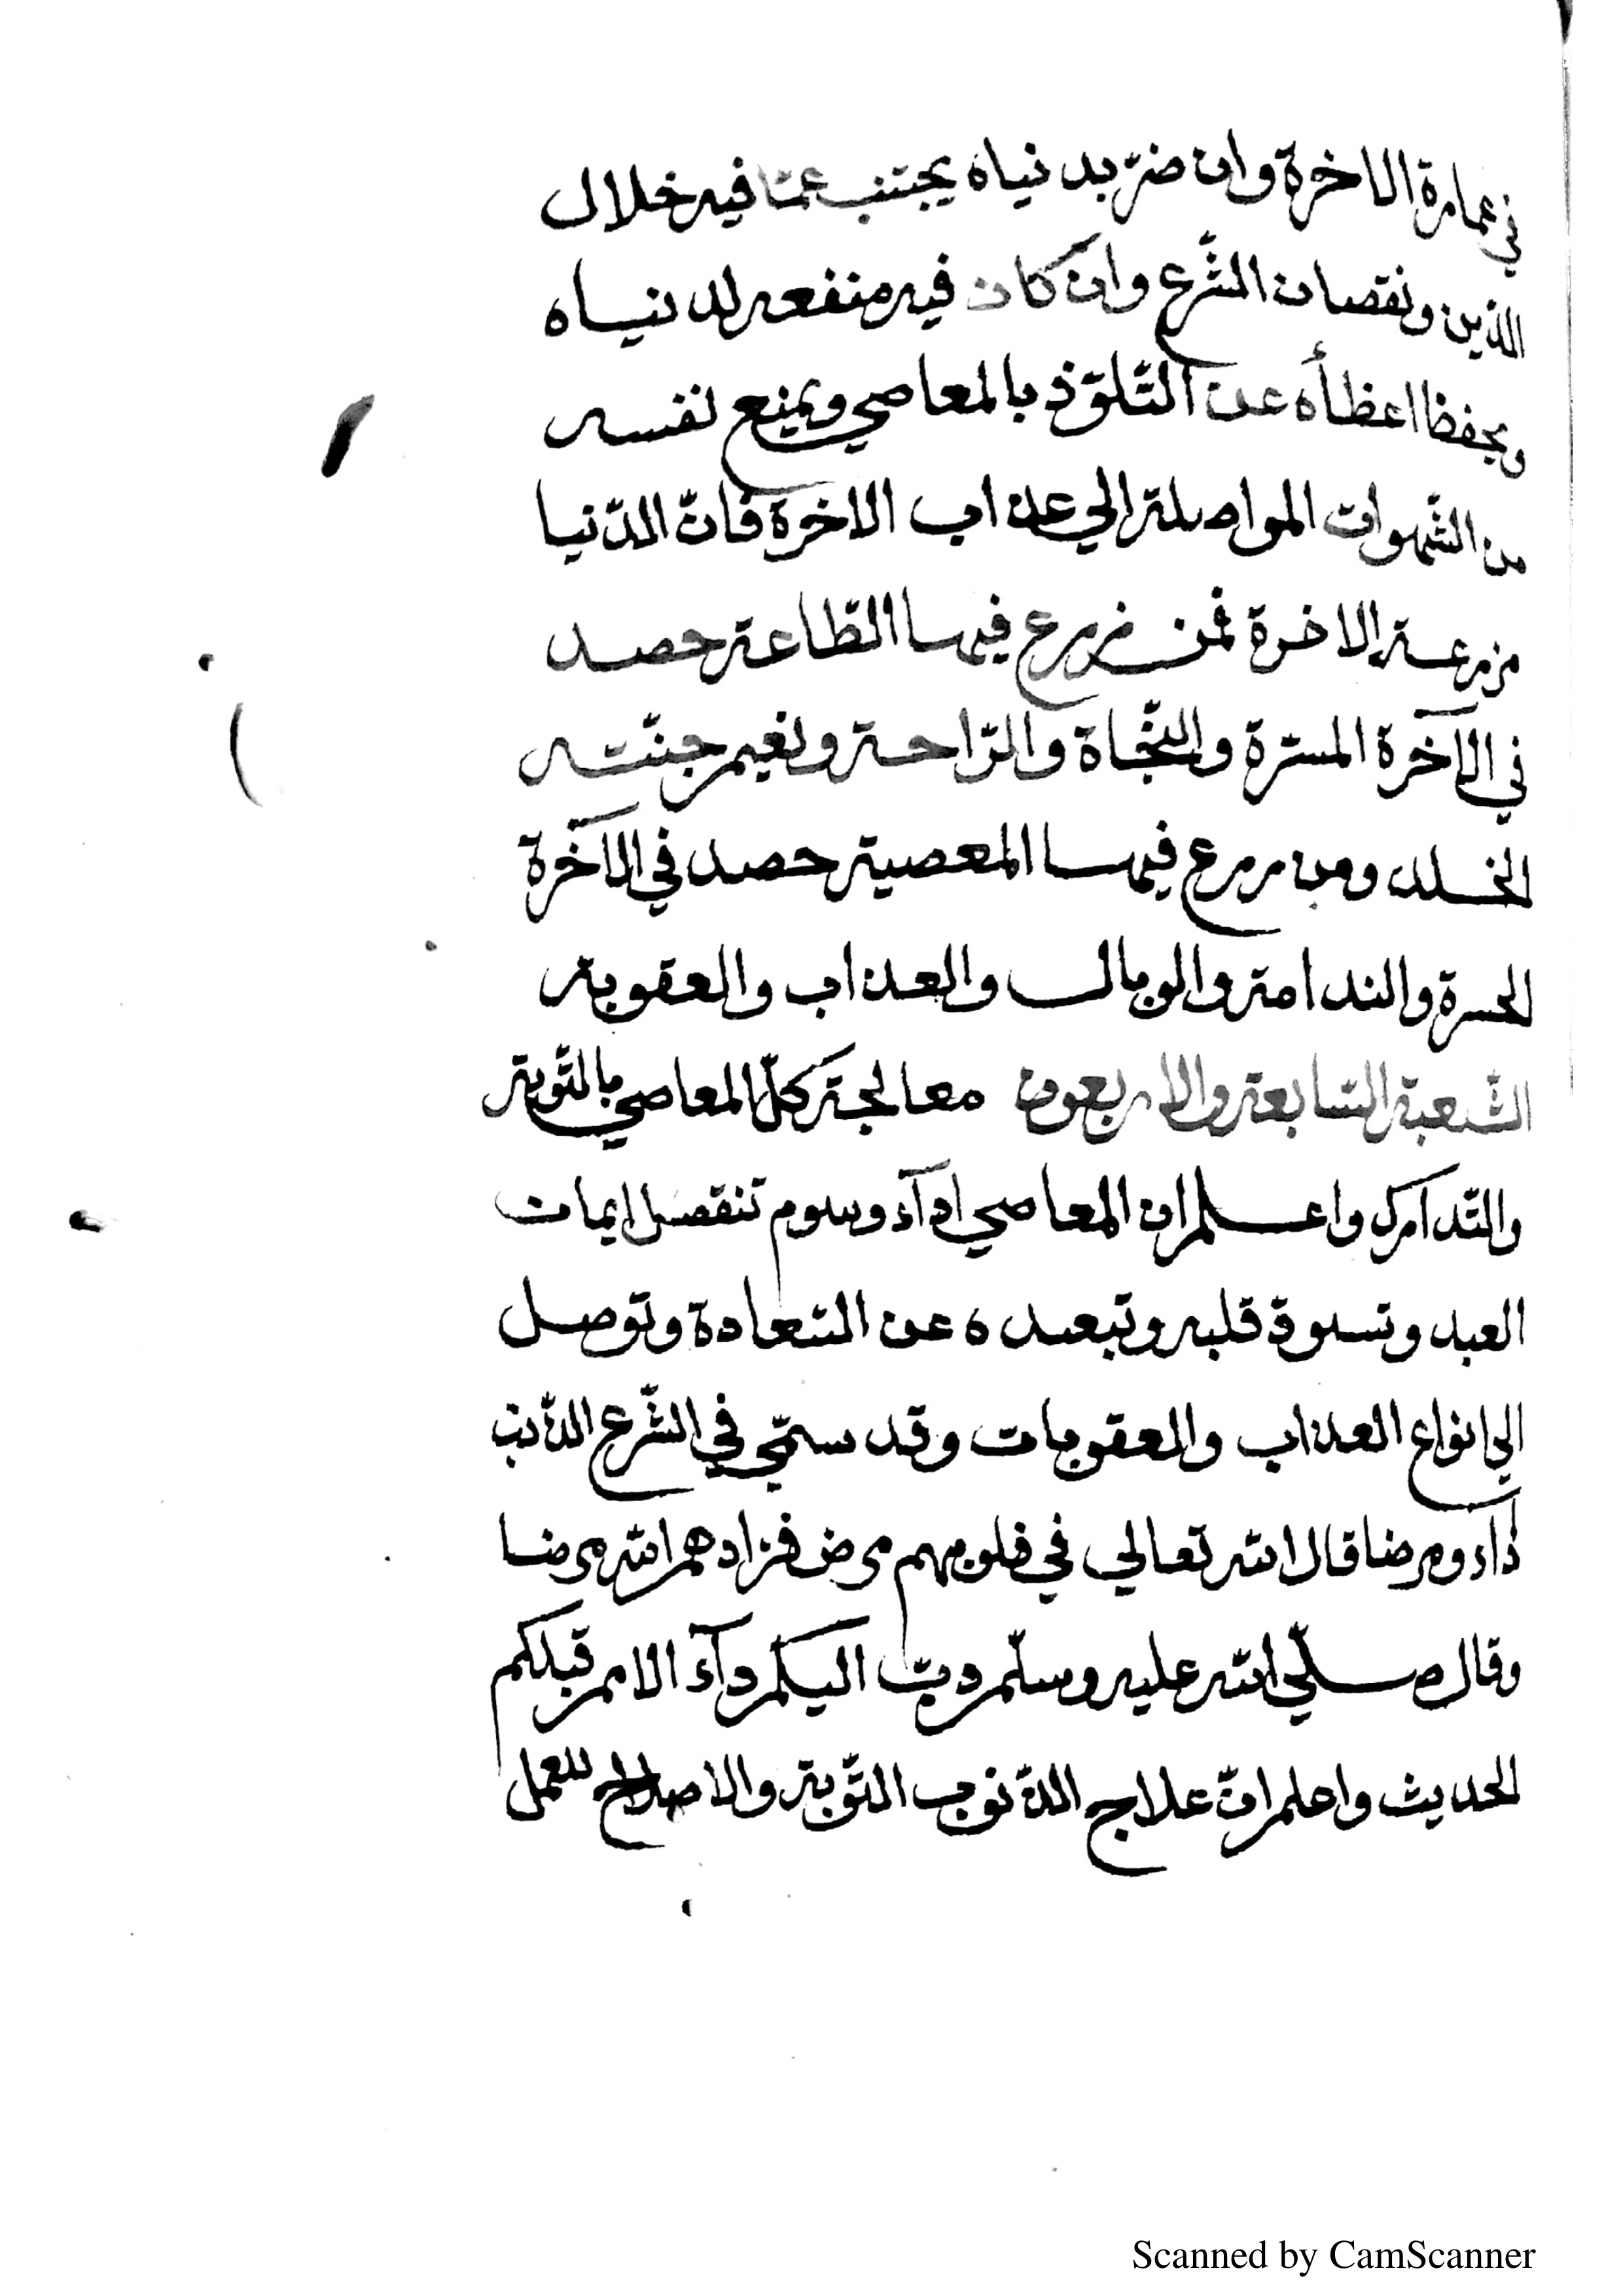 في عمارة الاخرة وان ضرّ بدنياه يجتنب عمّا فيه خلال
الدّين ونقصان الشّرع وان كان فيه منفعه لدنياه
ويحفظ اعظأه عن التّلوّذ بالمعاصي ويمنع نفسه
من الشّهوات المواصلة الي عذاب الاخرة فانّ الدّنيا
مزرعة الاخرة فمن زرع فيها الطّاعة حصد
في الآخرة المسرّة والنّجاة والرّاحة ونعيم جنّته
الخلد ومن زرع فيها المعصية حصد في الآخرة
الحسرة والندامة والوبال والعذاب والعقوبة
الشّعبة السّابعة والاربعون معالجة كلّ المعاصي بالتّوبة
والتّدارك واعلم ان المعاصي ادآء وسوم تنقص ايمان
العبد وتسوة قلبه وتبعده عن السّعادة وتوصل
الي انواع العذاب والعقوبات وقد سمّي في الشّرع الذّنب
دآء ومرضا قال الله تعالي في قلوبهم مرض فزادهم الله مرضا
وقال صلّي الله عليه وسلّم دبّ اليكم دآء الامم قبلكم
الحديث واعلم انّ علاج الذّنوب التّوبة والاصلاح للعمل
Scanned by CamScanner